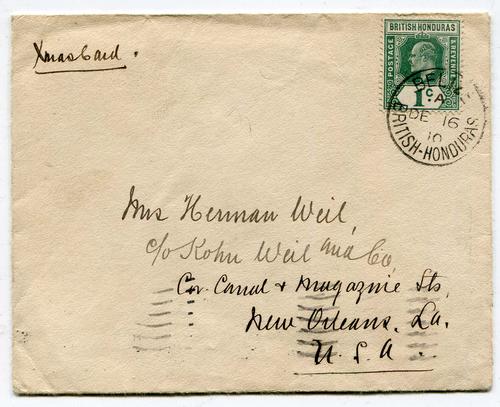 Xmas Card.
BRITISH HONDURAS
POSTAGE
& REVENUE
1c
BELIZE
A
DE 16
10
BRITISH-HONDURAS
Mrs Herman Weil,
c/o Kohn Weil and Co,
Cor. Canal & Magazine Sts,
New Orleans, La.
U.S.A.